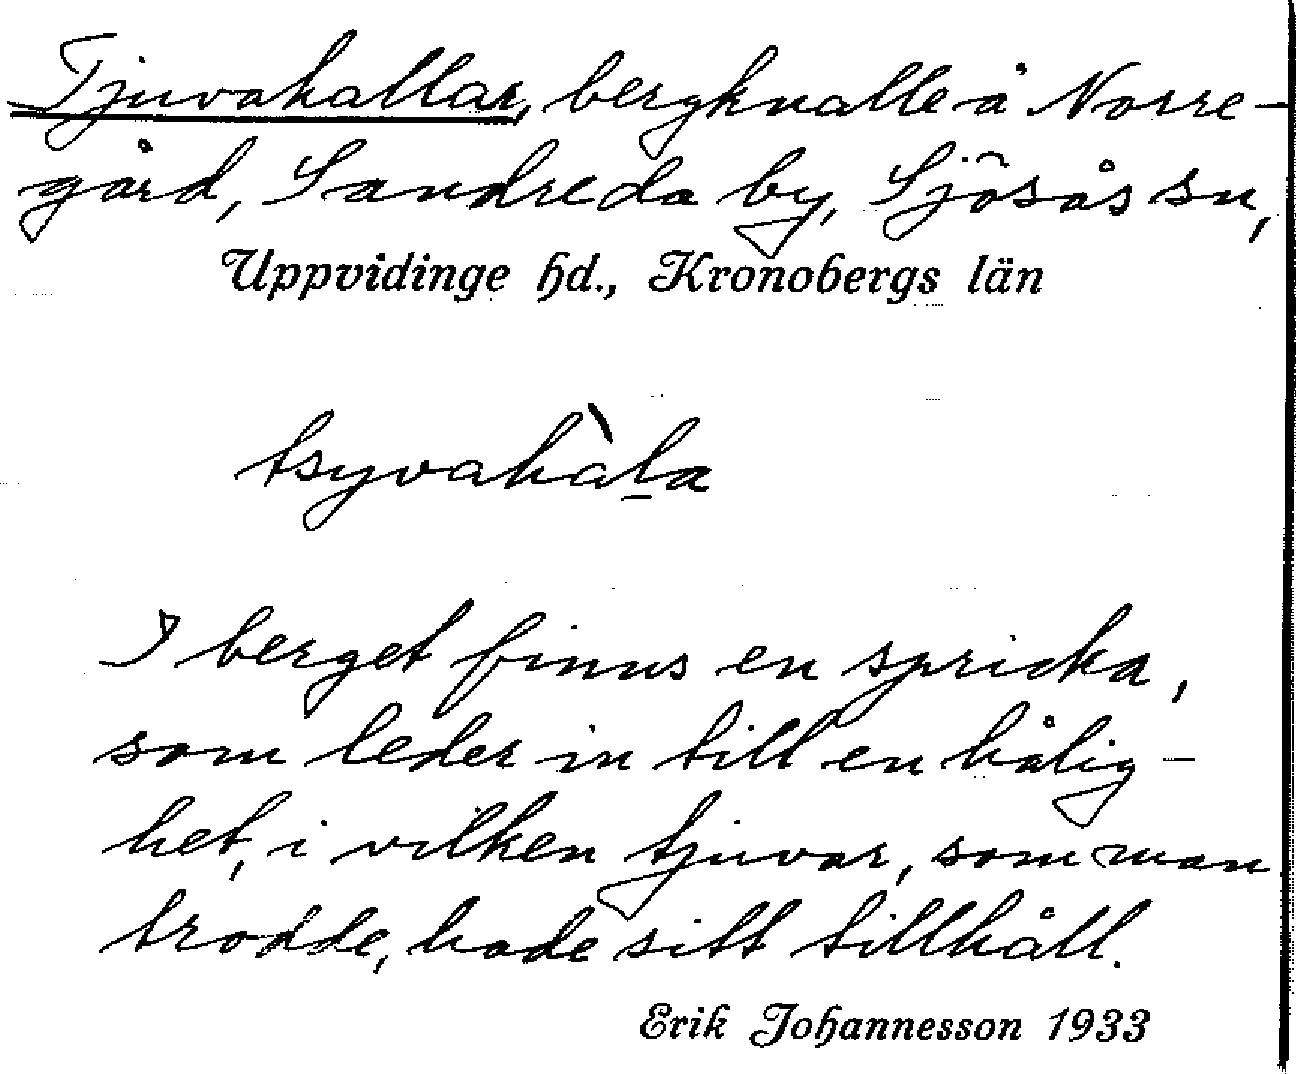 Tjuvahallar, bergknalle å Norre-
gård, Sandreda by, Sjösås sn,
Uppvidinge hd., Kronobergs län
tsyvahàla
I berget finns en spricka,
som leder in till en hålig-
het, i vilken tjuvar, som man
trodde, hade sitt tillhåll.
Erik Johannesson 1933